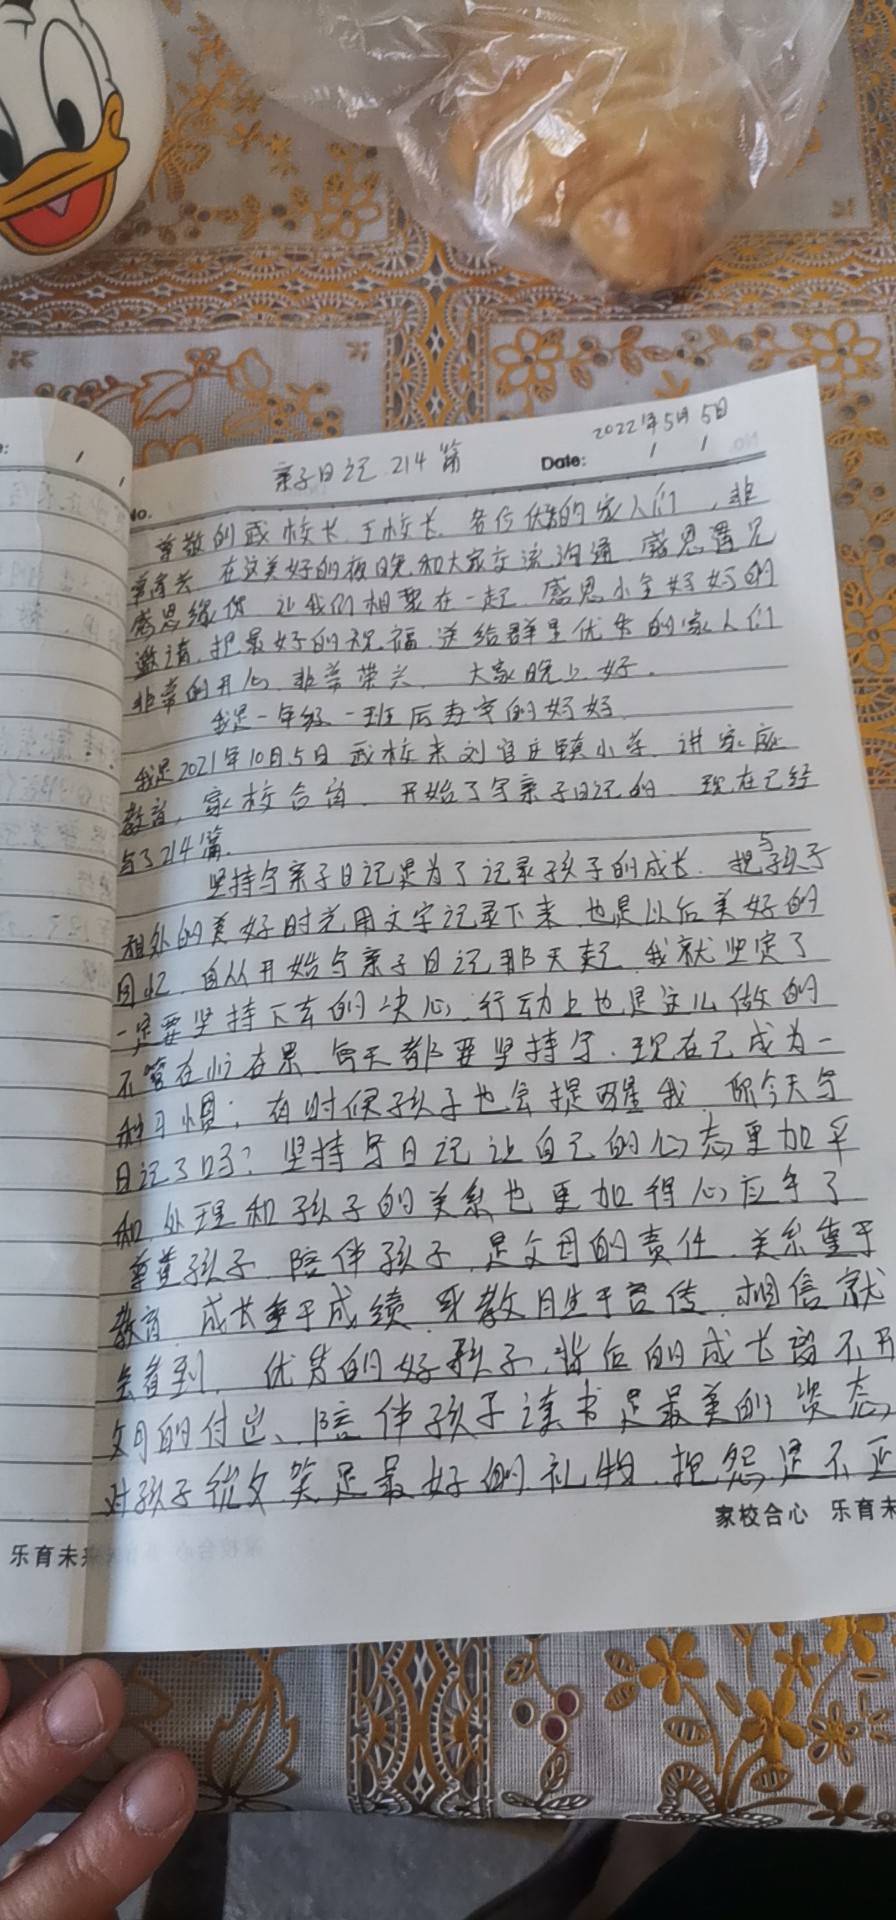 2022年5月5日
亲子日记 214篇
Date:
No.
尊敬的武校长、王校长、各位优秀的家人们,非
常高兴 在这美好的夜晚和大家交流沟通 感恩遇见
感恩缘份 让我们相聚在一起 感恩小全妈妈的
邀请,把最好的祝福送给群里优秀的家人们
非常的开心、非常荣兴 大家晚上好.
我是一年级一班 后 的妈妈
我是2021年10月5日 武校来刘官庄镇小学 讲家庭
教育,家校合育、开始了写亲子日记的 现在已经
写了214篇.
坚持写亲子日记是为了记录孩子的成长、把与孩子
相处的美好时光用文字记录下来 也是以后美好的
回忆、自从开始写亲子日记那天起 我就坚定了
一定要坚持下去的决心,行动上也是这么做的
不管在忙在累 每天都要坚持写、现在已成为一
种习惯;有时候孩子也会提醒我 你今天写
日记了吗?坚持写日记 让自己的心态更加平
和,处理和孩子的关系也更加得心应手了
尊重孩子 陪伴孩子 是父母的责任、关系重于
教育 成长重于成绩 身教胜于言传 相信就
会看到、优秀的好孩子,背后的成长离不开
父母的付出、陪伴孩子读书是最美的姿态
对孩子微笑是最好的礼物、抱怨是不正
家校合心 乐育未
乐育未来